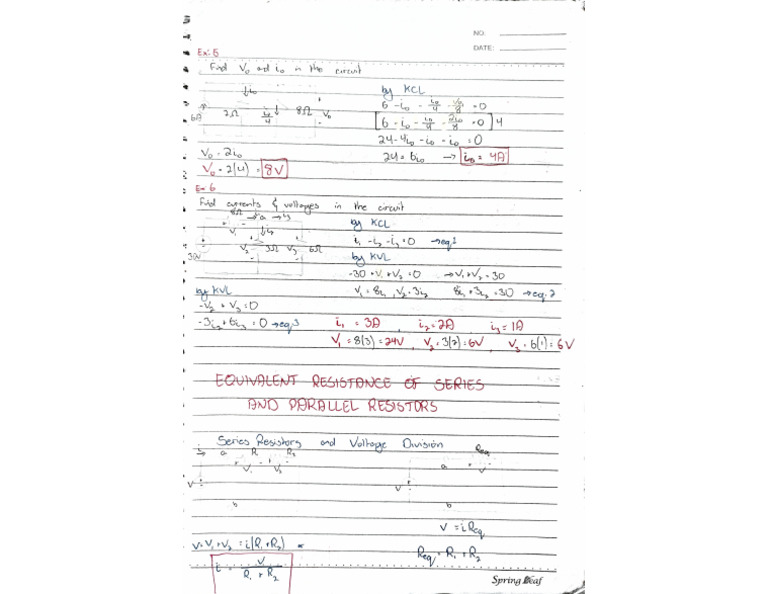 NO.
DATE:
Ex: 5
Find V₀ and i₀ in the circuit
↓i₀
6A 2Ω i₀/4 ↓ 8Ω V₀
by KCL
6 - i₀ - i₀/4 - V₀/8 = 0
[6 - i₀ - i₀/4 - 2i₀/8 = 0] 4
24 - 4i₀ - i₀ - i₀ = 0
24 = 6i₀ → i₀ = 4A
V₀ = 2i₀
V₀ = 2(4) = 8V
Ex 6
Find currents & voltages in the circuit
8Ω → a → i₃
+ V₁ - ↓i₂
30V V₂ 3Ω V₃ 6Ω
by KCL
i₁ - i₂ - i₃ = 0 → eq.1
by KVL
-30 + V₁ + V₂ = 0 → V₁ + V₂ = 30
V₁ = 8i₁ , V₂ = 3i₂ 8i₁ + 3i₂ = 30 → eq. 2
by KVL
-V₂ + V₃ = 0
-3i₂ + 6i₃ = 0 → eq.3
i₁ = 3A , i₂ = 2A , i₃ = 1A
V₁ = 8(3) = 24V , V₂ = 3(2) = 6V , V₃ = 6(1) = 6V
EQUIVALENT RESISTANCE OF SERIES
AND PARALLEL RESISTORS
Series Resistors and Voltage Division
i→ a R₁ R₂
+ V₁ - + V₂ -
V
b
Req
a + V -
V
b
V = iReq
Req = R₁ + R₂
V = V₁ + V₂ = i(R₁ + R₂)
i = V / R₁ + R₂
Spring Leaf